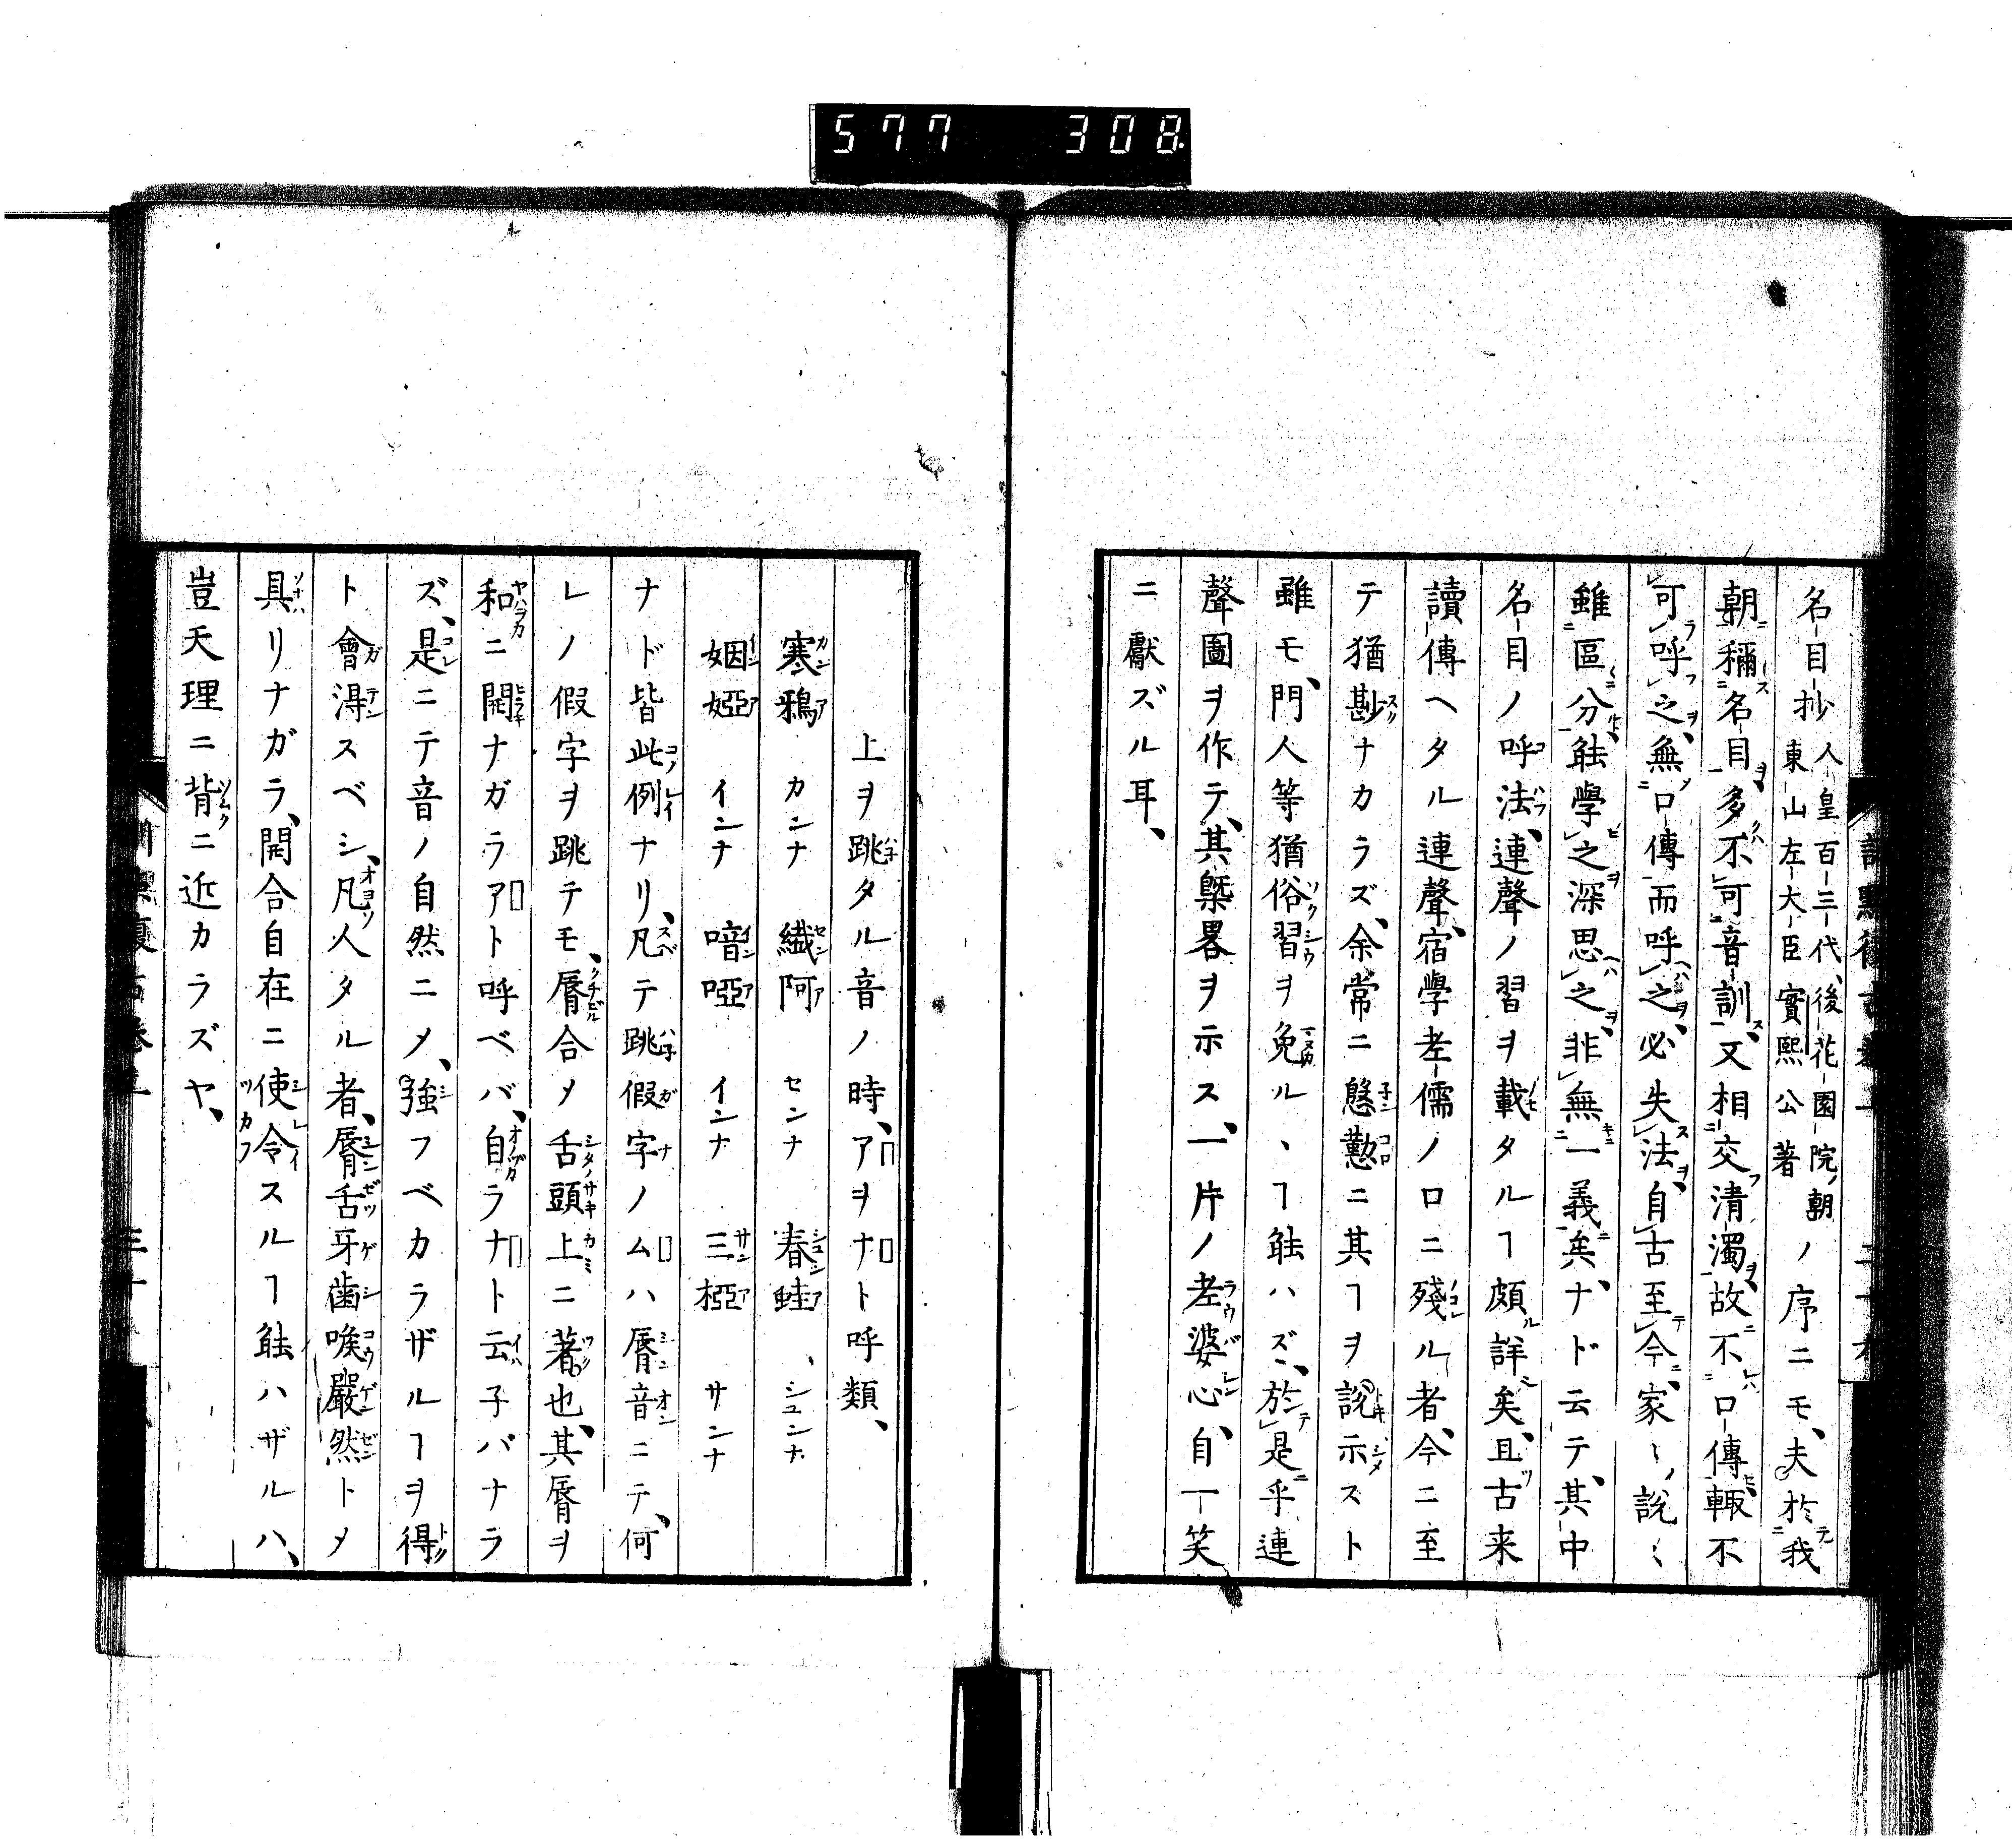 577 308
名目抄 人皇百三代、後花園院ノ朝 東山左大臣實熙公著 ノ序ニモ、夫於我
朝稱名目、多不可音訓、又相交清濁、故不口傳輙不
可呼之、無口傳而呼之、必失法、自古至今、家〻説〻
雖區分、能學之深思之、非無一義矣、ナド云テ、其中
名目ノ呼法、連聲ノ習ヲ載タルヿ頗詳矣、且古来
讀傳ヘタル連聲、宿學老儒ノ口ニ殘ル者、今ニ至
テ猶尠ナカラズ、余常ニ慇懃ニ其ヿヲ説示スト
雖モ、門人等猶俗習ヲ免ルヽヿ能ハズ、於是乎連
聲圖ヲ作テ、其槩畧ヲ示ス、一片ノ老婆心、自一笑
ニ獻ズル耳、
上ヲ跳タル音ノ時、アヲナト呼類、
寒鴉 カンナ 繊阿 センナ 春蛙 シユンナ
姻婭 インナ 喑啞 インナ 三椏 サンナ
ナド皆此例ナリ、凡テ跳假字ノムハ脣音ニテ、何
レノ假字ヲ跳テモ、脣合メ舌頭上ニ著也、其脣ヲ
和ニ開ナガラアト呼ベバ、自ラナト云子バナラ
ズ、是ニテ音ノ自然ニメ、強フベカラザルヿヲ得
ト會得スベシ、凡人タル者、脣舌牙齒喉嚴然トメ
具リナガラ、開合自在ニ使令スルヿ能ハザルハ、
豈天理ニ背ニ近カラズヤ、